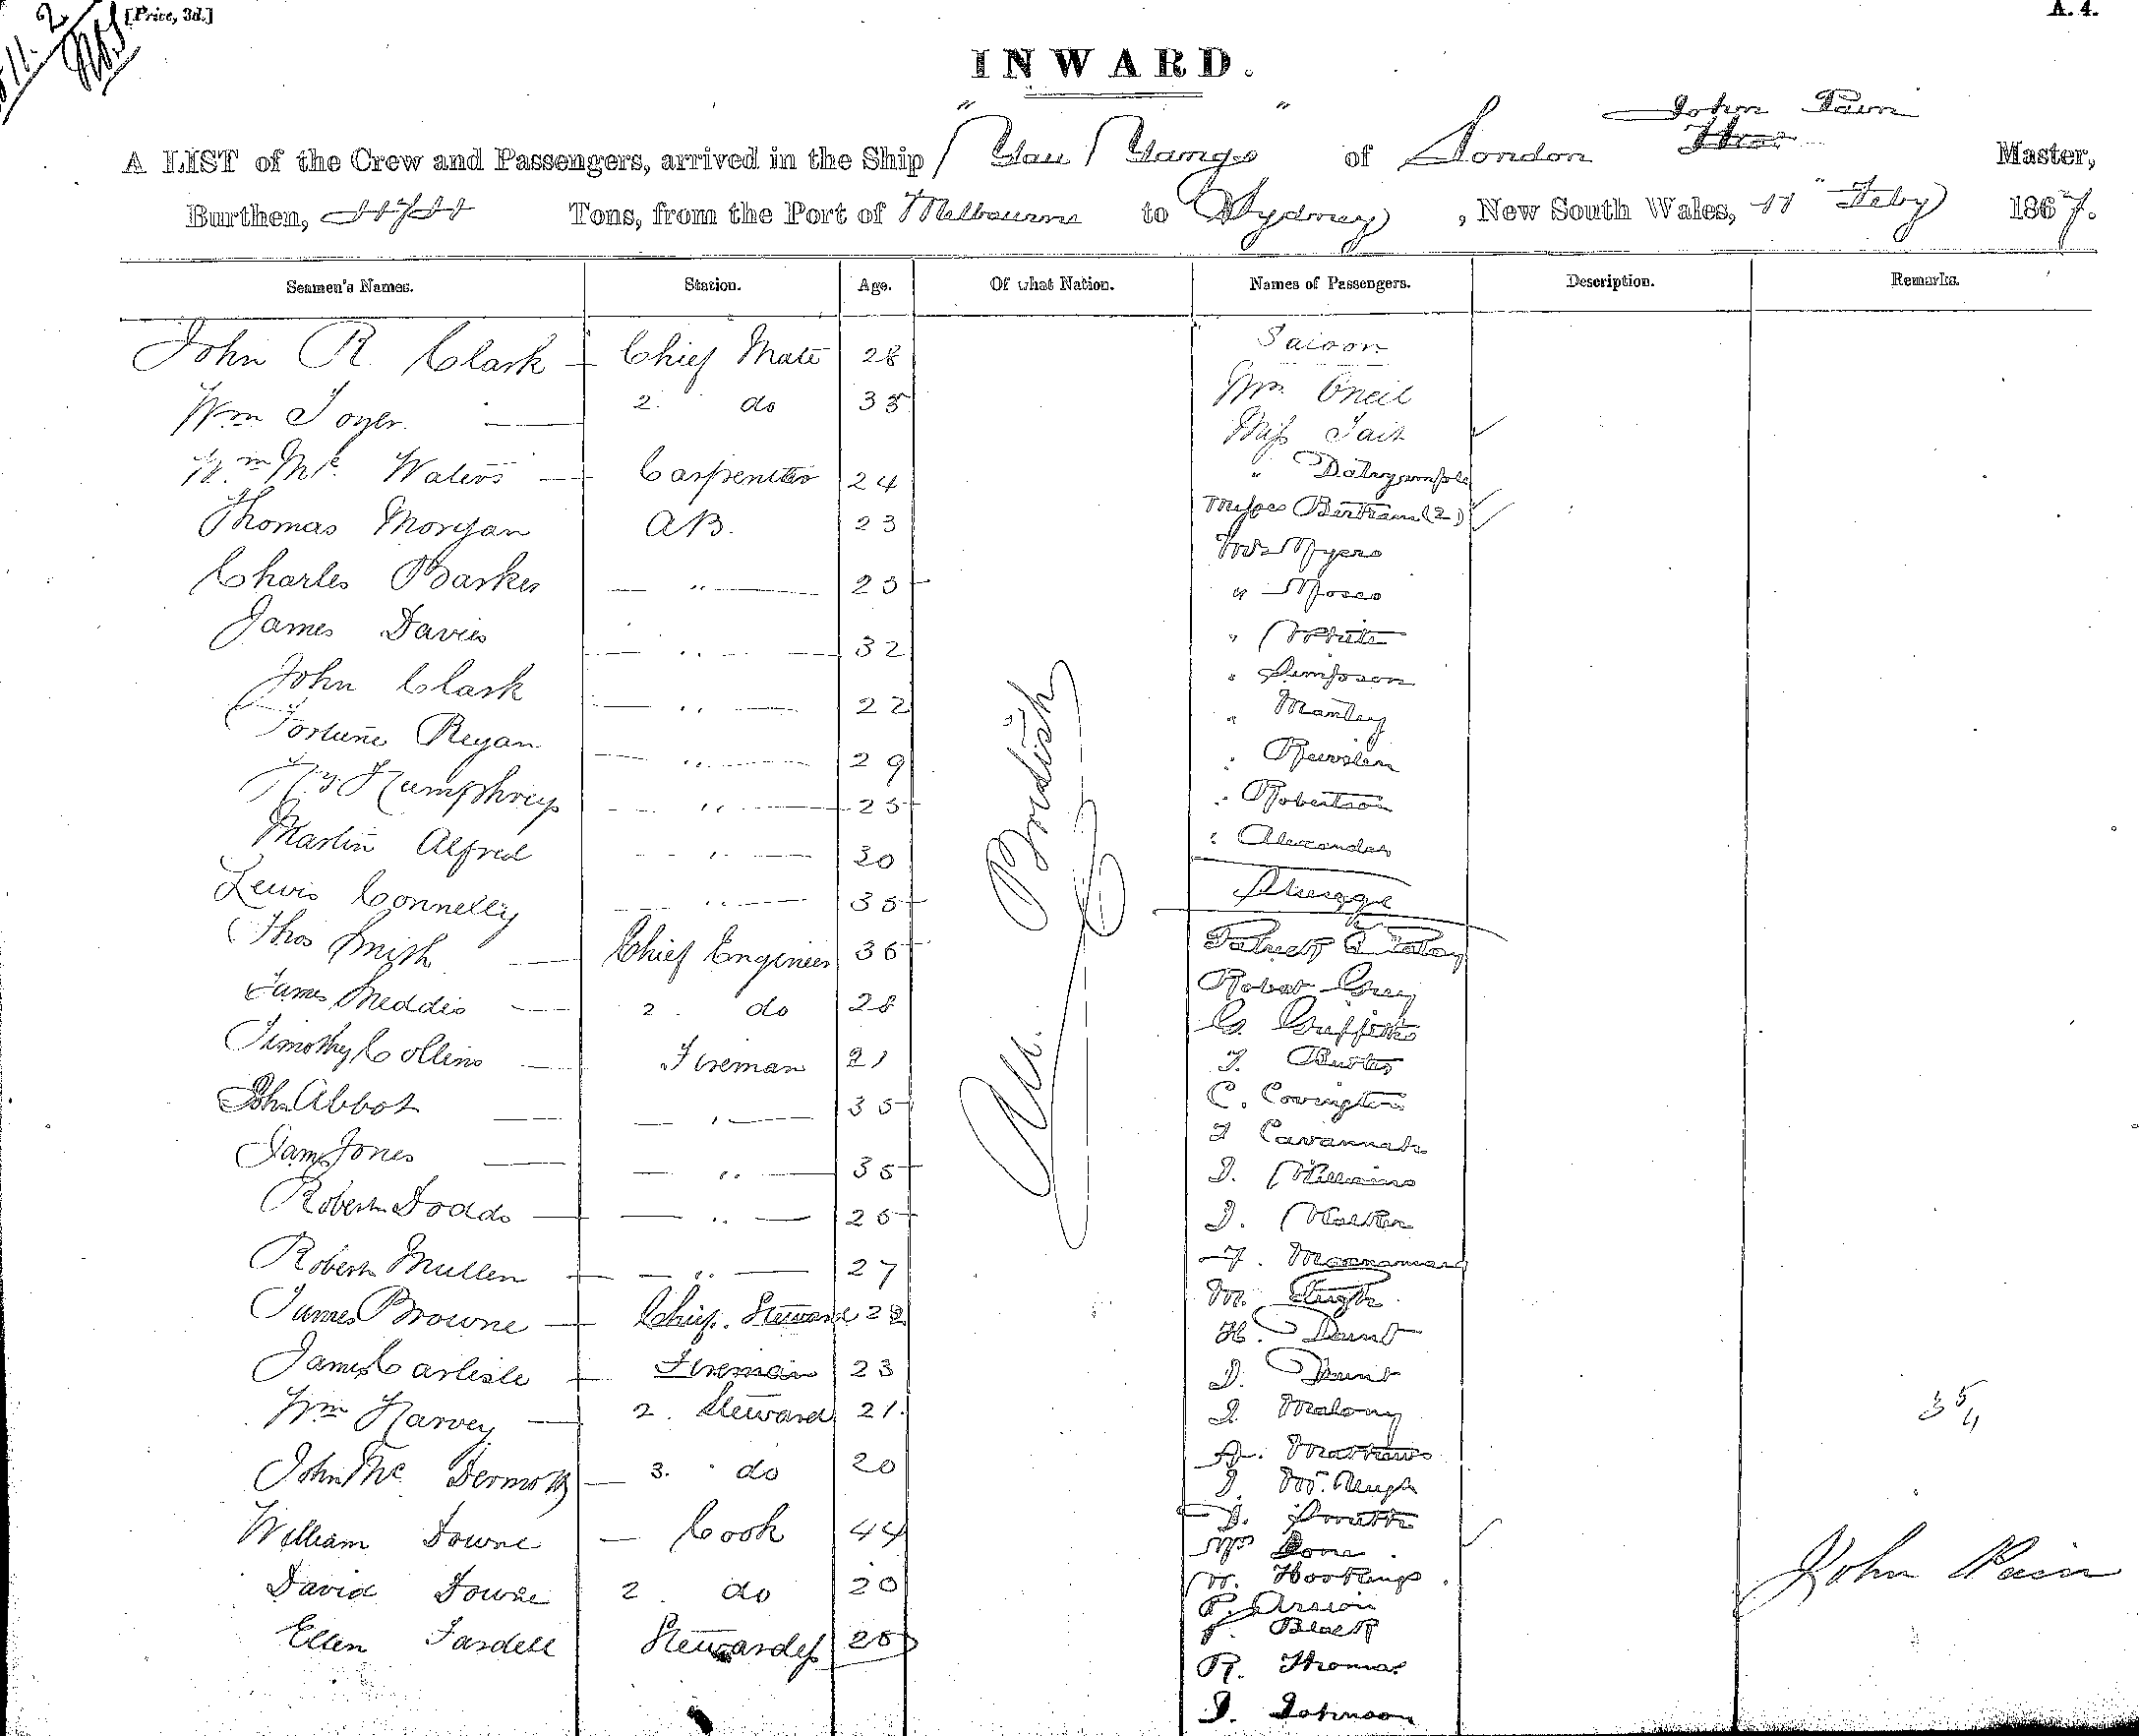 [Price, 3d.]
A. 4.
INWARD.
John Pain
A LIST of the Crew and Passengers, arrived in the Ship "You Yangs" of London Master,
Burthen, Tons, from the Port of Melbourne to Sydney, New South Wales, 11" Feby 1867.
Seamen's Names. Station. Age. Of what Nation. Names of Passengers. Description. Remarks.
John R. Clark Chief Mate 28 Saloon
Wm 2. do 35 Mr. Oneil
Miss Tait
Wm Mc Waters Carpenter 24 " Dalrymple
Thomas Morgan AB. 23 Misses Bertram (2)
Mr Myers
Charles Barker " 25 " Moses
James Davies " 32 " White
John Clark " 22 " Simpson
" Manley
Fortune Regan " 29 "
Hy Humphreys " 25 " Robertson
Martin Alfred " 30 " Alexander
Lewis Connelly " 35 Steerage
Thos Smith Chief Engineer 36 Patrick
James Meddis 2. do 28 Robert Grey
G. Griffiths
Timothy Collins Fireman 21 J.
John Abbot " 35 C. Covington
J Cavannah
James Jones " 35 J. Williams
Robert Dodds " 26 J. Walker
Robert Mullen " 27 F. Macnamara
M. Pugh
James Browne Chief. Steward 22 H. Dunt
James Carlisle Fireman 23 J. Dunt
Wm Harvey 2. Steward 21 J. Malony
John Mc Dermott 3. do 20 A. Matthews
J. Mc. Hugh
William Downe Cook 44 J. Smith
Mrs Done
David Downe 2. do 20 W. Hoskings
P. Arscon
Ellen Tardell Stewardess 25 J. Black
R. Thomas
J. Johnson
All British
35/4
John Pain